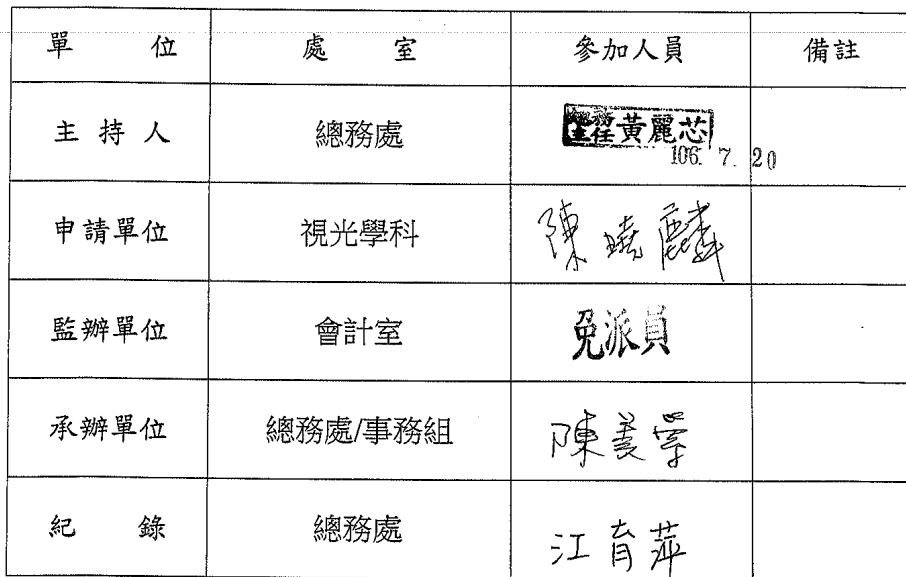 單 位 處 室 參加人員 備註
主 持 人 總務處 總務主任 黃麗芯
106. 7. 20
申請單位 視光學科 陳曉麟
監辦單位 會計室 免派員
承辦單位 總務處/事務組 陳美
紀 錄 總務處 江育萍